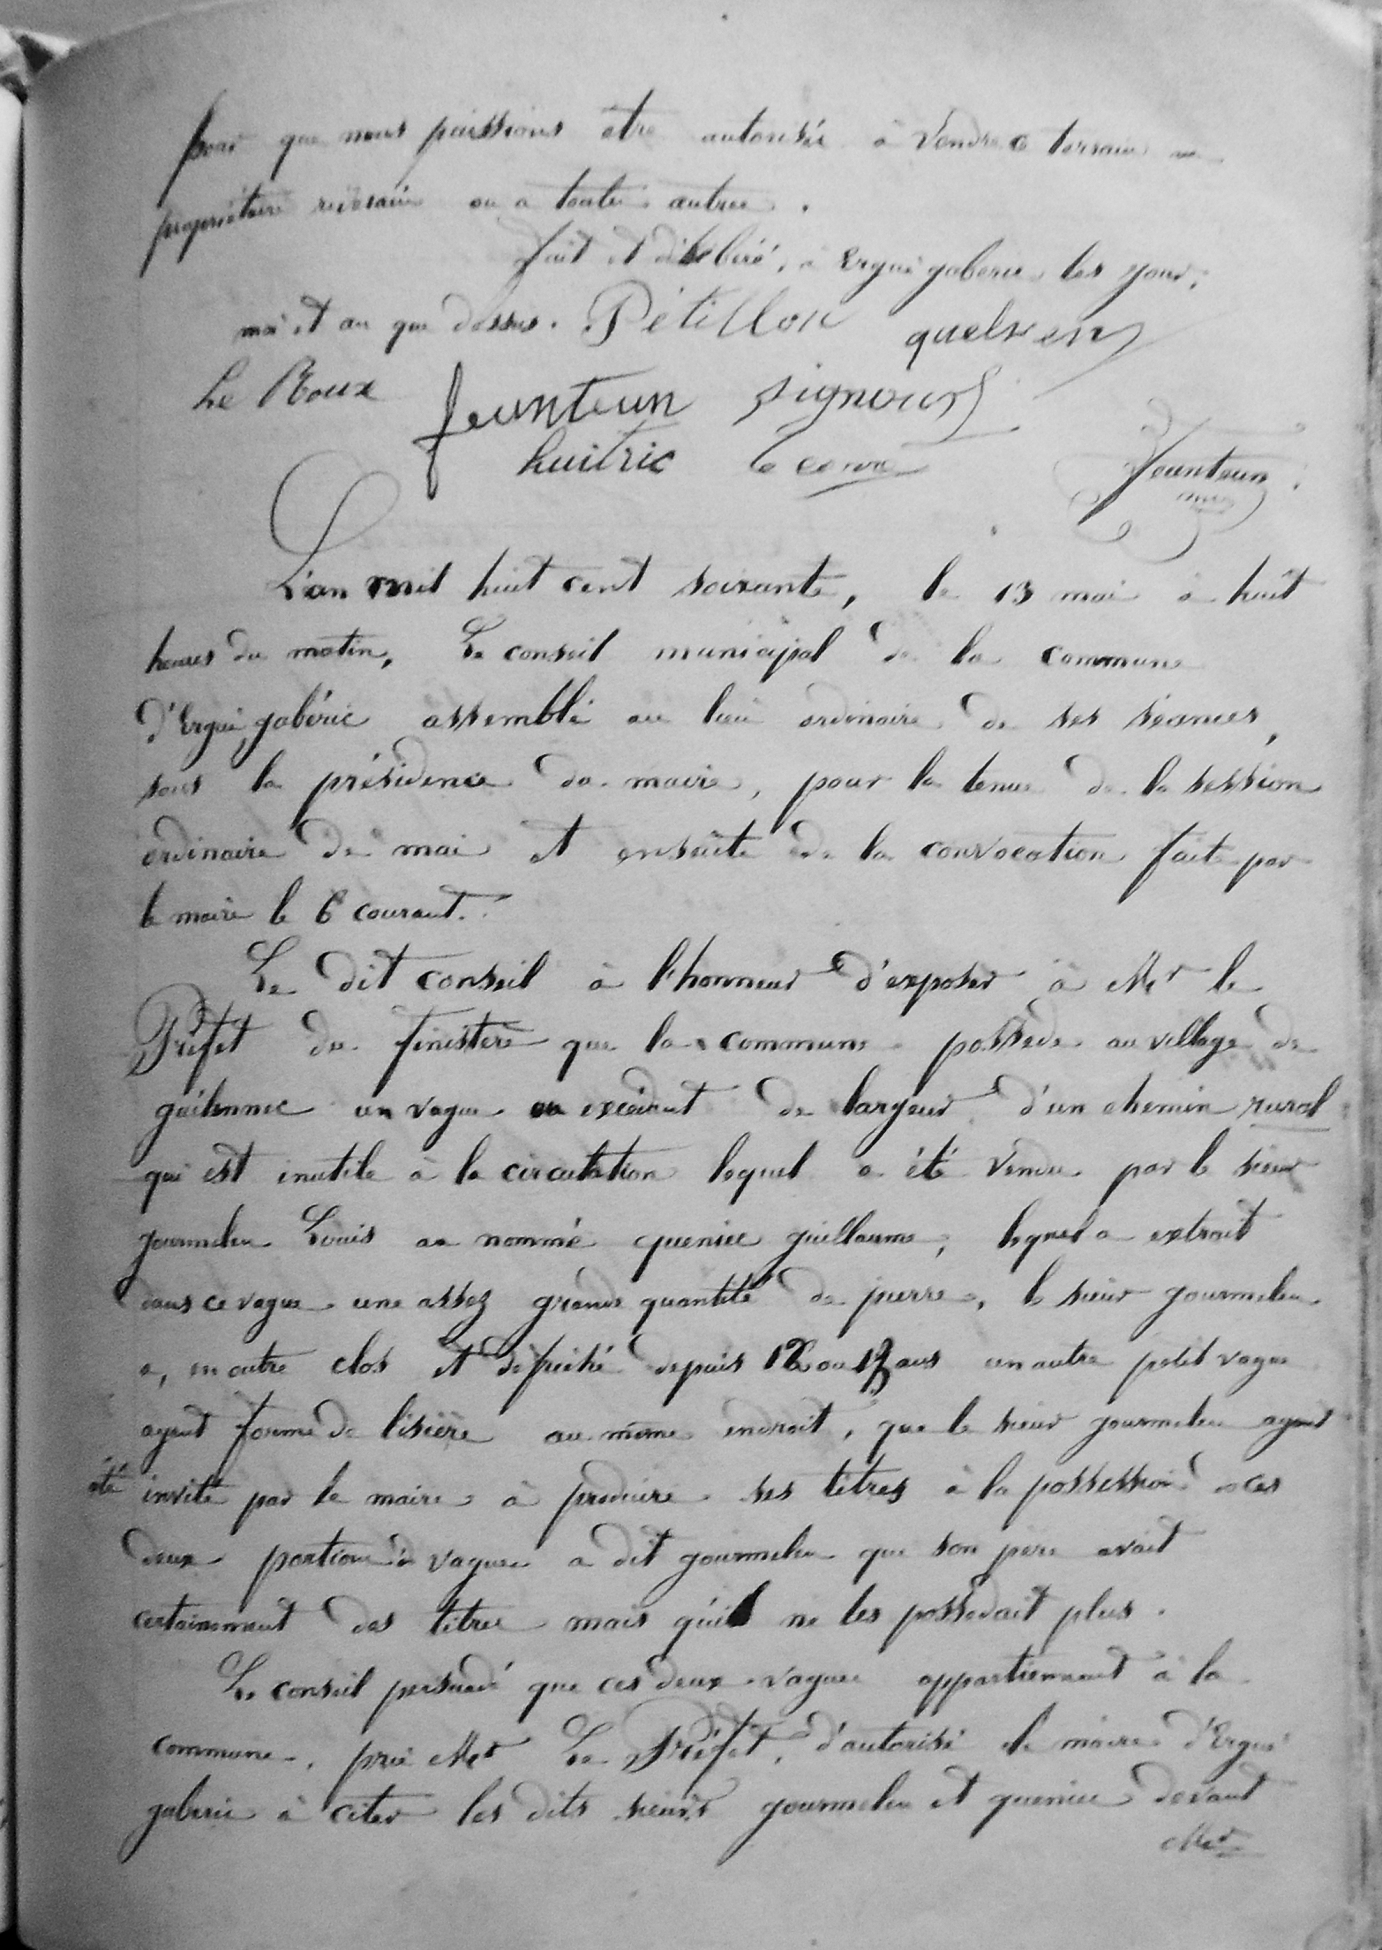 pour que nous puissions etre autorisée à Vendre ce terrain au
propriétaire riverain ou a toute autres.
fait et délibéré, à Ergué gaberic les jour,
moi et an que dessus. Pétillon quelven
Le Roux feunteun signour
huitric le corre feunteun
mre
L'an mil huit cent soixante, le 13 mai à huit
heures du matin, Le conseil municipal de la commune
d'Ergué gabéric assemblé au lieu ordinaire de ses séances,
sous la présidence du maire, pour la tenue de la session
ordinaire de mai et ensuite de la convocation faite par
le maire le 6 courant.
Le dit conseil à l'honneur d'exposer à Mr le
Préfet du finistère que la commune possede au village de
guélennec un vague ou excédent de largeur d'un chemin rural
qui est inutile à la circulation lequel a été Vendu par le sieur
gourmelen Louis au nommé queneec guillaume, lequel a extrait
dans ce vague une assez grande quantité de pierre, le sieur gourmelen
a, en outre clos et defriché depuis 12 ou 13 ans un autre petit vague
ayant forme de lisière au même endroit, que le sieur gourmelen ayant
été invité par le maire à produire ses titres à la possession de ces
deux portions de vagues a dit gourmelen que son père avait
certainement des titres mais qu'il ne les possedait plus.
Le conseil persuadé que ces deux vagues appartiennent à la
commune, prie Mr Le Préfet, d'autorisé le maire d'Ergué
gaberic à citer les dits sieurs gourmelen et queneec devant
Mr